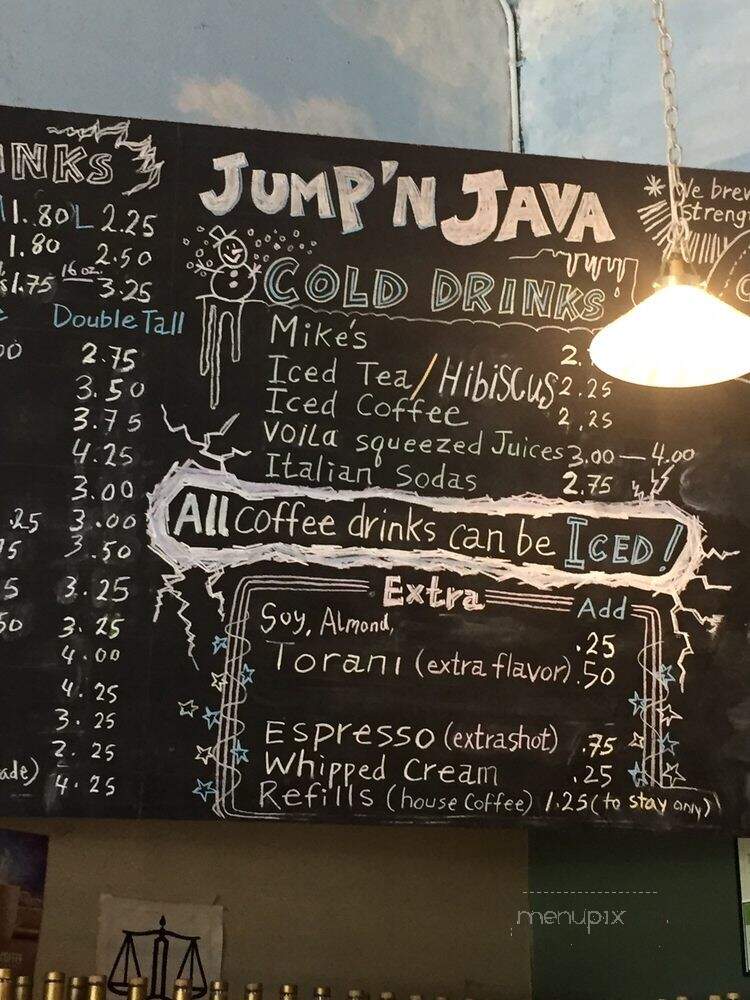 INKS
1.80 L 2.25
1.80 2.50
1.75 16 oz. 3.25
Double Tall
2.75
3.50
3.75
4.25
3.00
.25 3.00
3.50
3.25
3.25
4.00
4.25
3.25
2.25
ade) 4.25
JUMP'N JAVA
COLD DRINKS
Mike's 2.
Iced Tea/Hibiscus 2.25
Iced Coffee 2.25
Voila squeezed Juices 3.00 — 4.00
Italian Sodas 2.75
All coffee drinks can be ICED!
Extra Add
Soy, Almond, .25
Torani (extra flavor) .50
Espresso (extra shot) .75
Whipped Cream .25
Refills (house Coffee) 1.25 (to stay only)
We brew
Streng
menupix